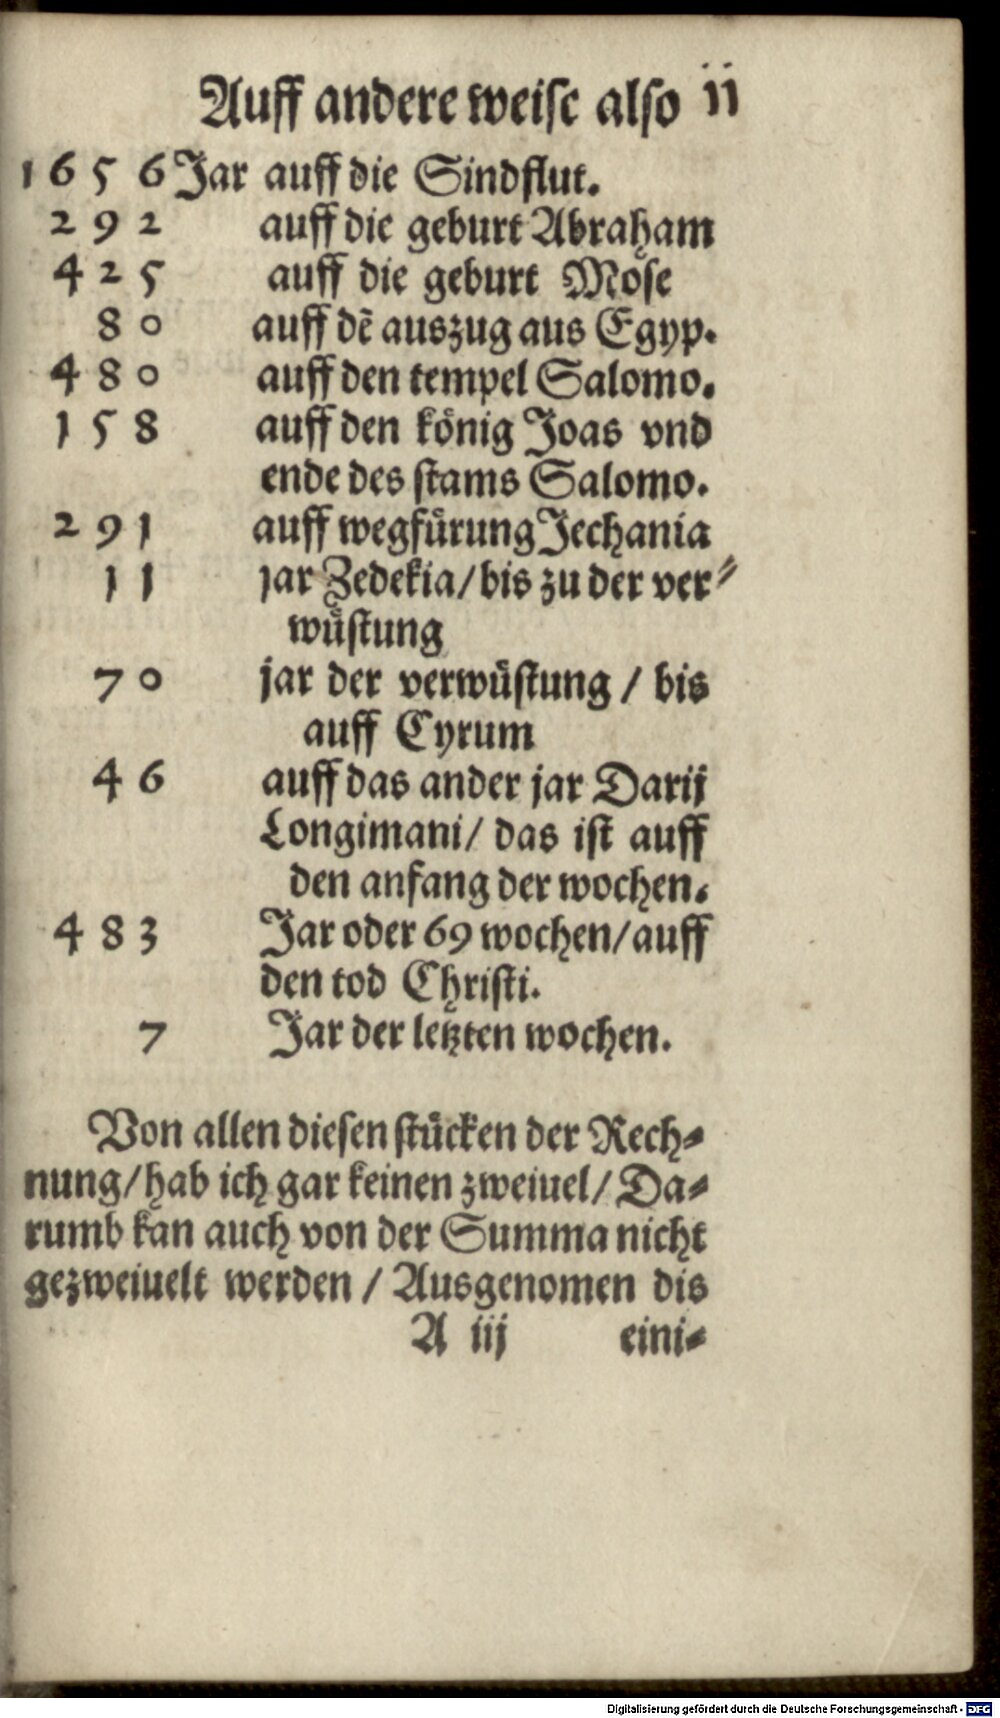 Auff andere weise also ii
1656 Jar auff die Sindflut.
292 auff die geburt Abraham
425 auff die geburt Mose
80 auff dē auszug aus Egyp.
480 auff den tempel Salomo.
158 auff den König Joas vnd
ende des stams Salomo.
291 auff wegfürung Jechania
11 jar Zedekia/bis zu der ver-
wüstung
70 jar der verwüstung / bis
auff Cyrum
46 auff das ander jar Darij
Longimani/ das ist auff
den anfang der wochen.
483 Jar oder 69 wochen/auff
den tod Christi.
7 Jar der letzten wochen.
Von allen diesen stücken der Rech-
nung/hab ich gar keinen zweiuel/Da-
rumb kan auch von der Summa nicht
gezweiuelt werden / Ausgenomen dis
A iij eini-
Digitalisierung gefördert durch die Deutsche Forschungsgemeinschaft - DFG